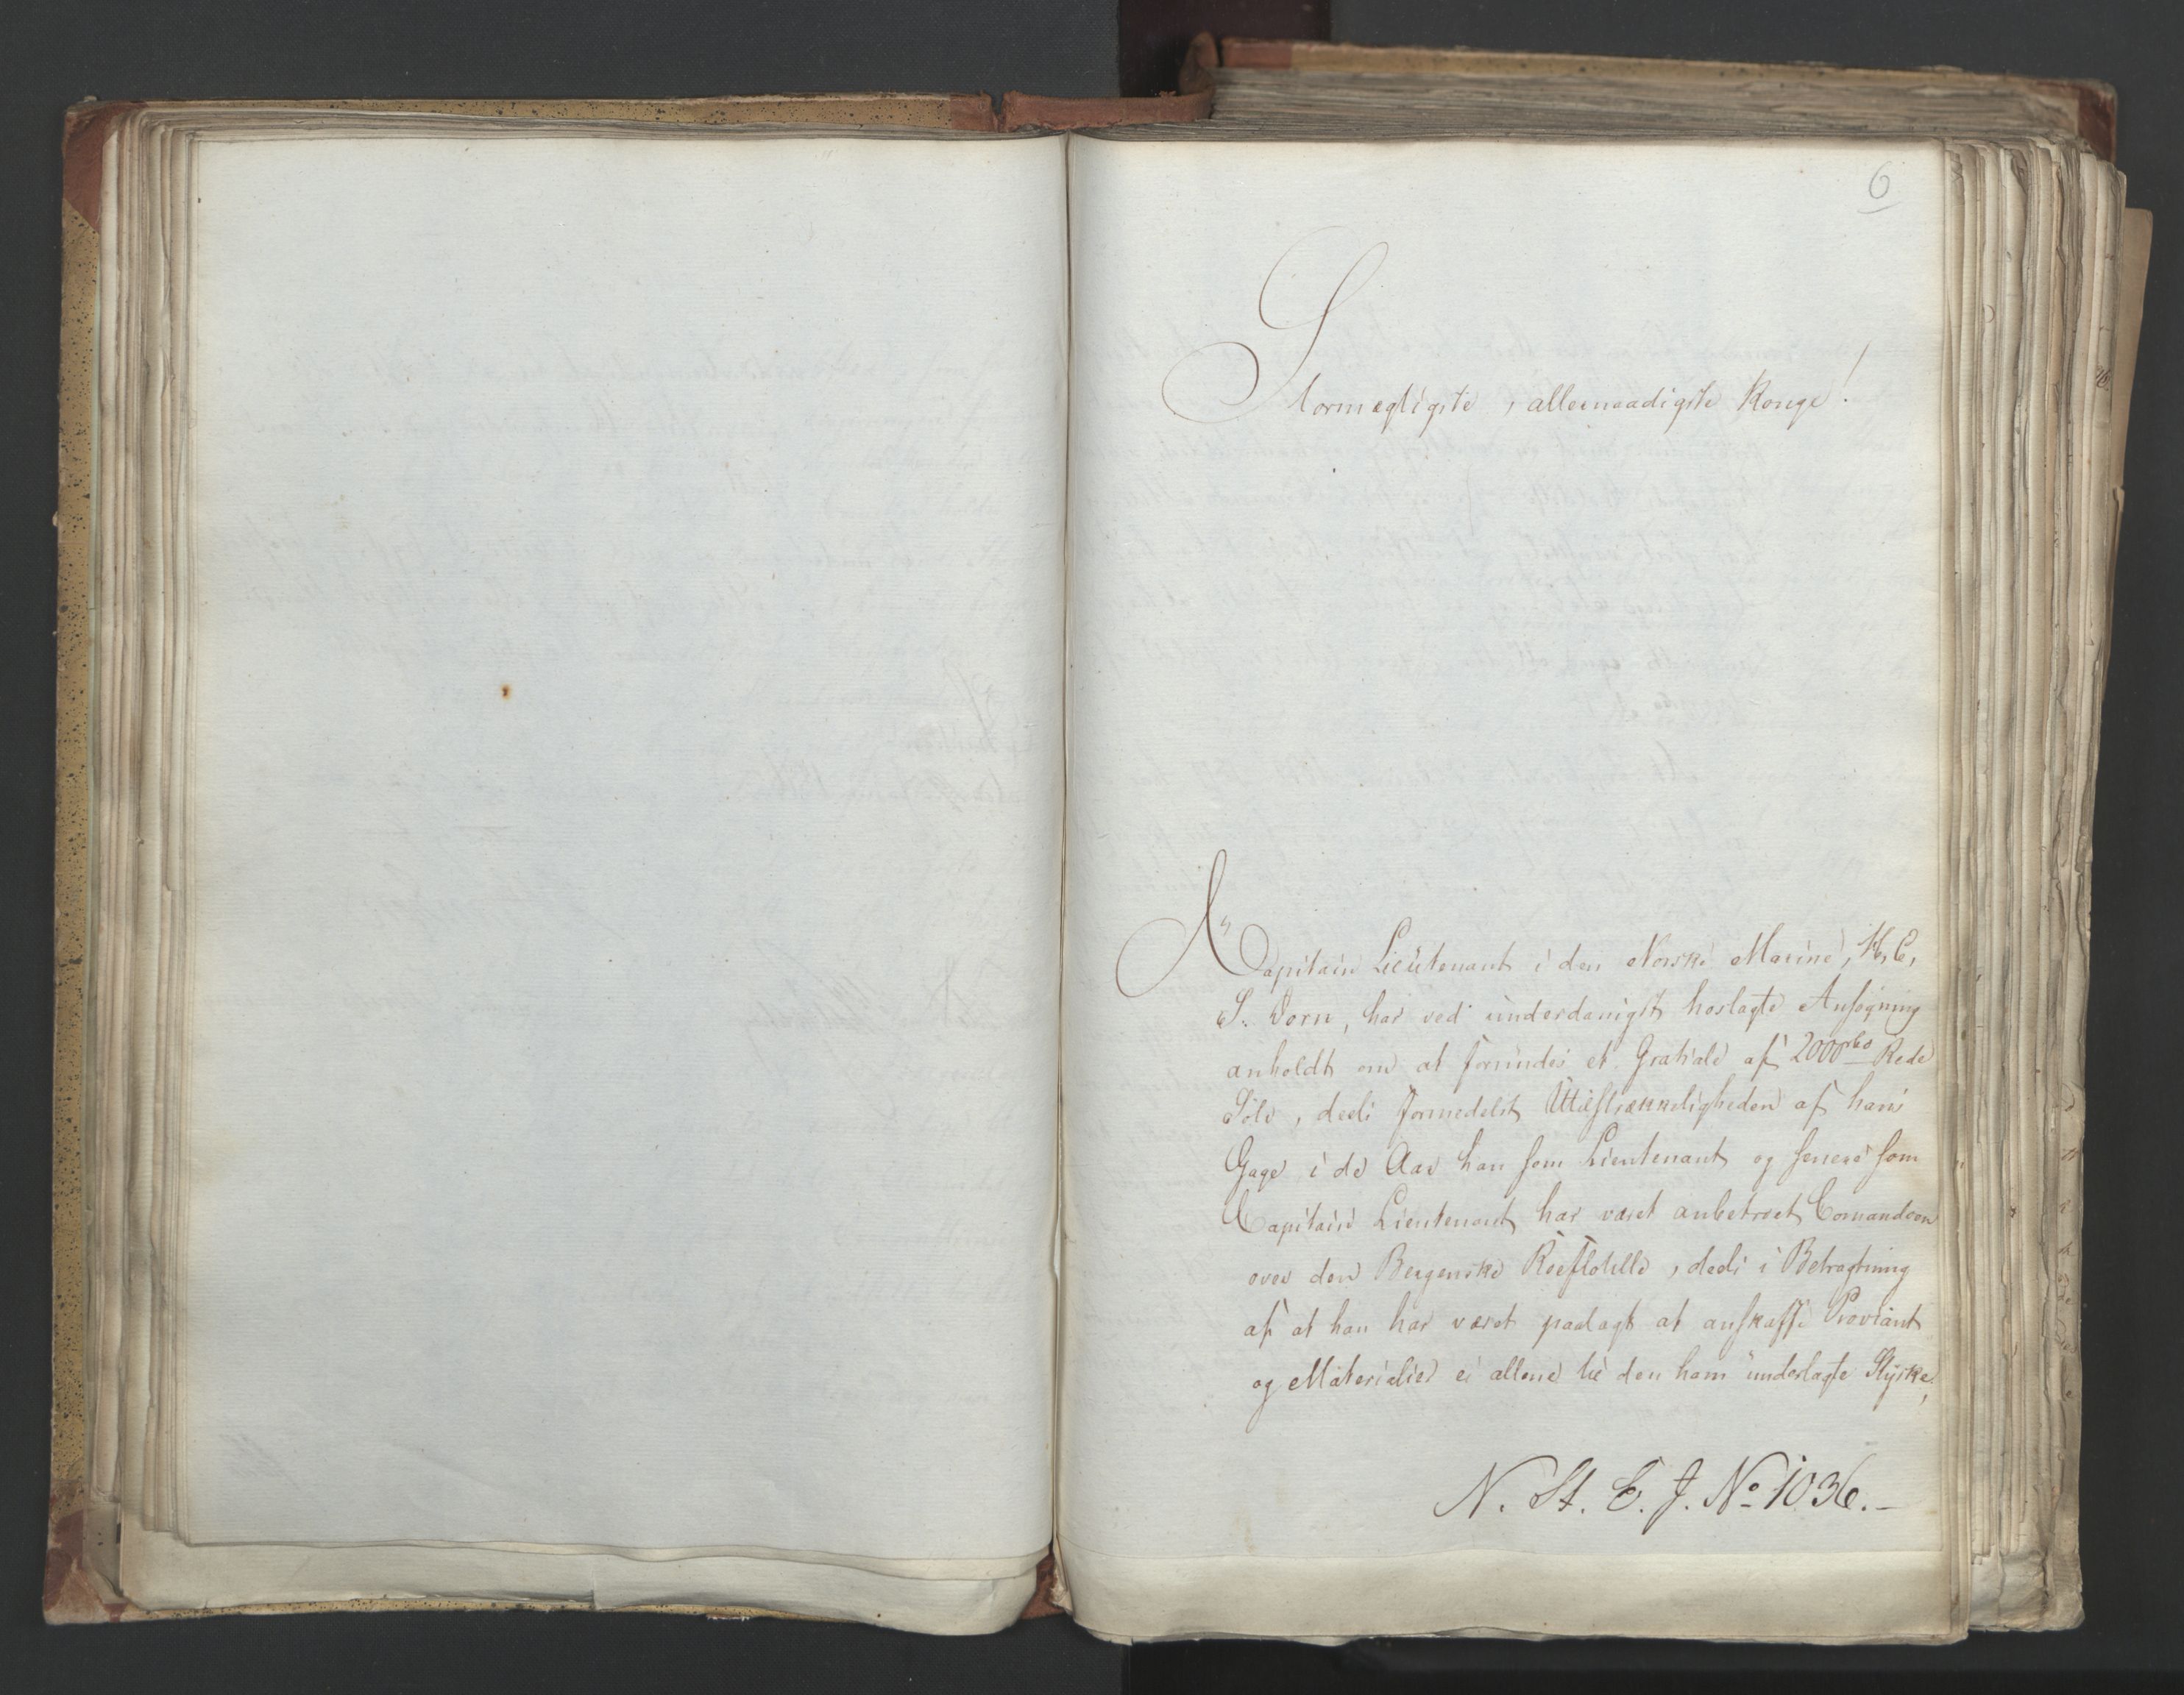 6
Stormægtigste, allernaadigste Konge!
Capitain Lieutenant i den Norske Marine,
S. Sorn, har ved underdanigst hoslagte Ansøgning
anholdt om at forundes et Gratiale af 2000 rbd Rede
Sølv, deels formedelst Utilstrækkeligheden af hans
Gage i de Aar han som Lieutenant og senere som
Capitain Lieutenant har været anbetroet Comandoen
over den Bergenske Roeflotille, deels i Betragtning
af at han har været paalagt at anskaffe Proviant
og Materialier ei allene til den ham underlagte Styrke,
N. St. E. J. No 1036.-